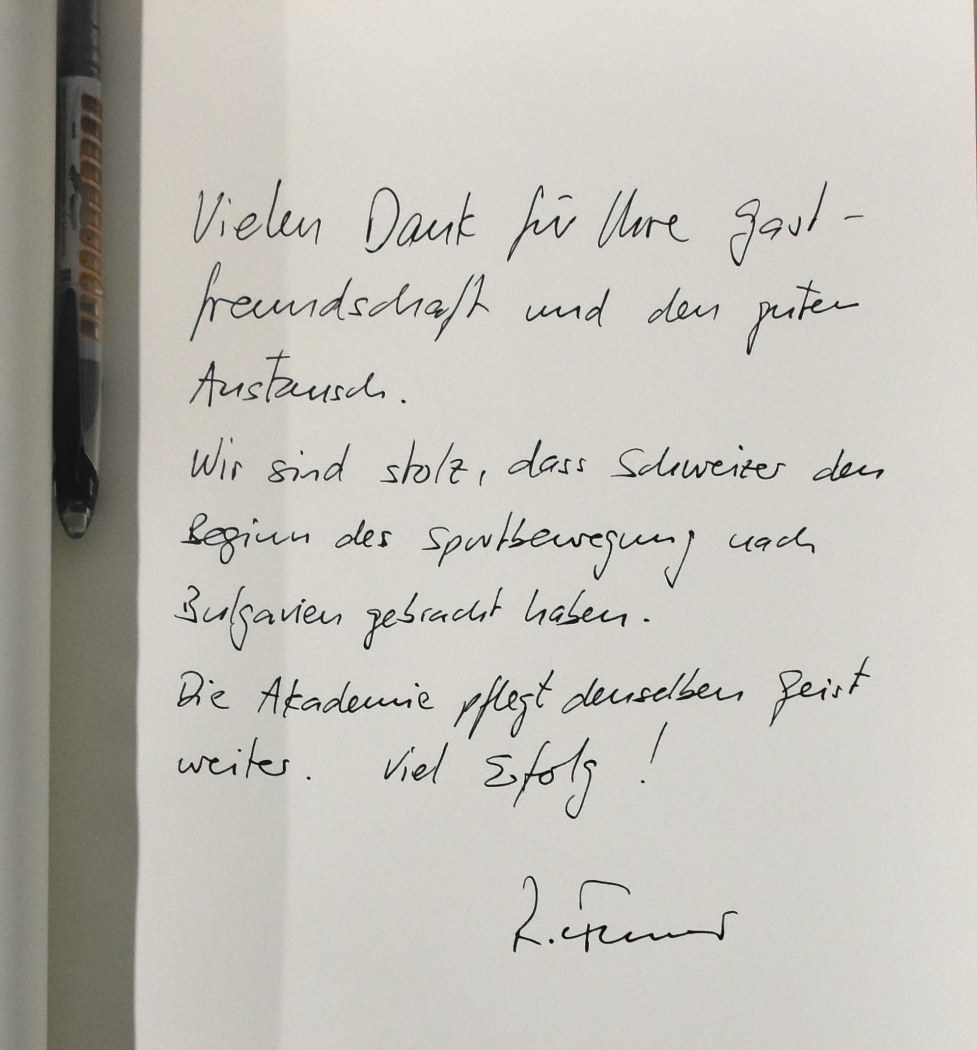 Vielen Dank für Ihre Gast-
freundschaft und den guten
Austausch.
Wir sind stolz, dass Schweizer den
Beginn des Sportbewegung nach
Bulgarien gebracht haben.
Die Akademie pflegt denselben Geist
weiter. Viel Erfolg!